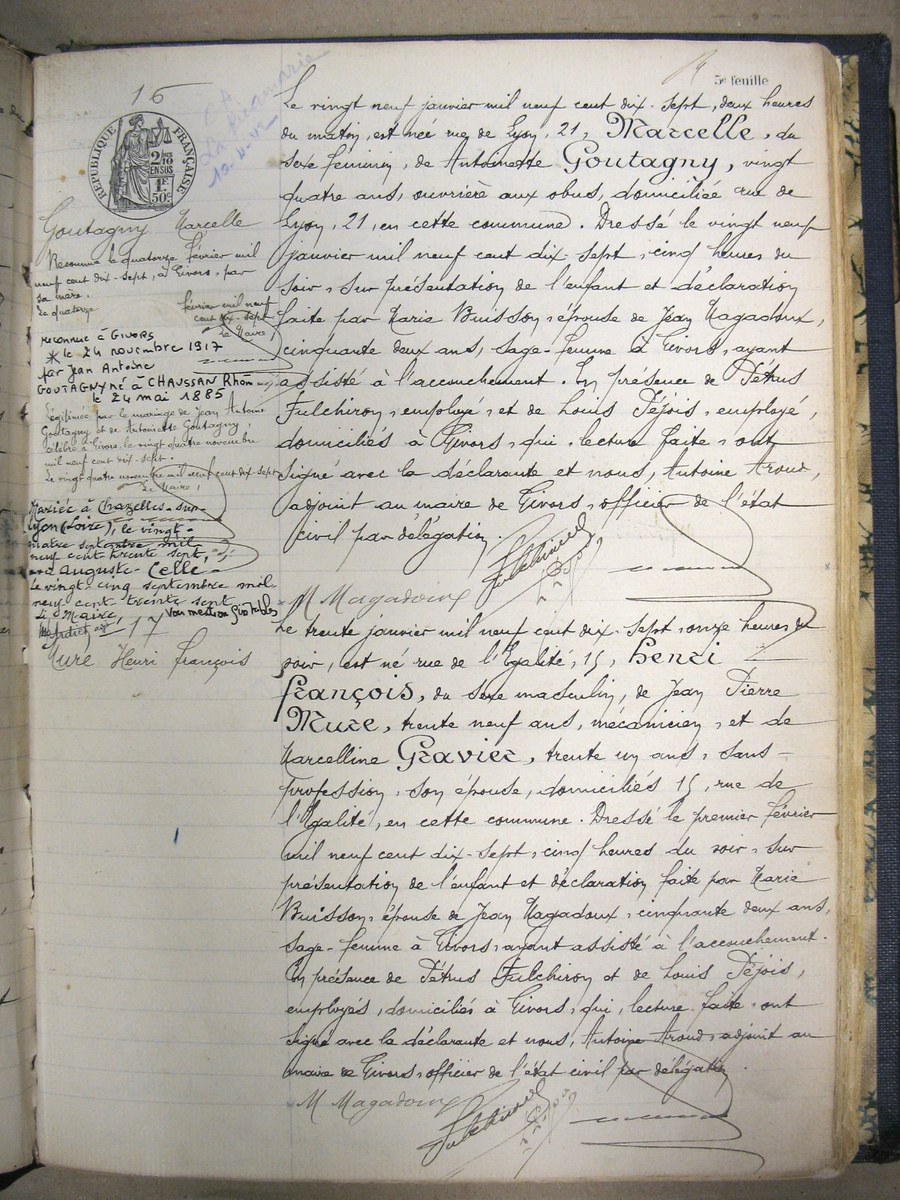 5e feuille
16
RÉPUBLIQUE FRANÇAISE
2/10 EN SUS
1F 50c
Goutagny Marcelle
Reconnue le quatorze février mil
neuf cent dix-sept, à Givors, par
sa mère.
Le quatorze février mil neuf
cent dix-sept
Le Maire
reconnue à GIVORS
le 24 novembre 1917
par Jean Antoine
GOUTAGNY né à CHAUSSAN Rhône
le 24 mai 1885
Légitimée par le mariage de Jean Antoine
Goutagny et de Antoinette Goutagny,
célébré à Givors, le vingt quatre novembre
mil neuf cent dix-sept.
Le vingt quatre novembre mil neuf cent dix sept
Le Maire,
Mariée à Chazelles-sur-
Lyon (Loire), le vingt-
quatre septembre mil
neuf cent trente sept,
avec Auguste Celle
Le vingt-cinq septembre mil
neuf cent trente sept
Le Maire,
Le vingt neuf janvier mil neuf cent dix-sept, deux heures
du matin, est née rue de Lyon, 21, Marcelle, du
sexe féminin, de Antoinette Goutagny, vingt
quatre ans, ouvrière aux obus, domiciliée rue de
Lyon, 21, en cette commune. Dressé le vingt neuf
janvier mil neuf cent dix-sept, cinq heures du
soir, sur présentation de l'enfant et déclaration
faite par Marie Buisson, épouse de Jean Magadoux,
cinquante deux ans, sage-femme à Givors, ayant
assisté à l'accouchement. En présence de Pétrus
Fulchiron, employé, et de Louis Déjois, employé,
domiciliés à Givors, qui, lecture faite, ont
signé avec la déclarante et nous, Antoine Aroud,
adjoint au maire de Givors, officier de l'état
civil par délégation.
M Magadoux
Fulchiron
17
Mure Henri François
Le trente janvier mil neuf cent dix-sept, onze heures du
soir, est né rue de l'Egalité, 15, Henri
François, du sexe masculin, de Jean Pierre
Mure, trente neuf ans, mécanicien, et de
Marcelline Gravier, trente un ans, sans
profession, son épouse, domiciliés 15, rue de
l'Egalité, en cette commune. Dressé le premier février
mil neuf cent dix-sept, cinq heures du soir, sur
présentation de l'enfant et déclaration faite par Marie
Buisson, épouse de Jean Magadoux, cinquante deux ans,
sage-femme à Givors, ayant assisté à l'accouchement.
En présence de Pétrus Fulchiron et de Louis Déjois,
employés, domiciliés à Givors, qui, lecture faite, ont
signé avec la déclarante et nous, Antoine Aroud, adjoint au
maire de Givors, officier de l'état civil par délégation.
M Magadoux
Fulchiron